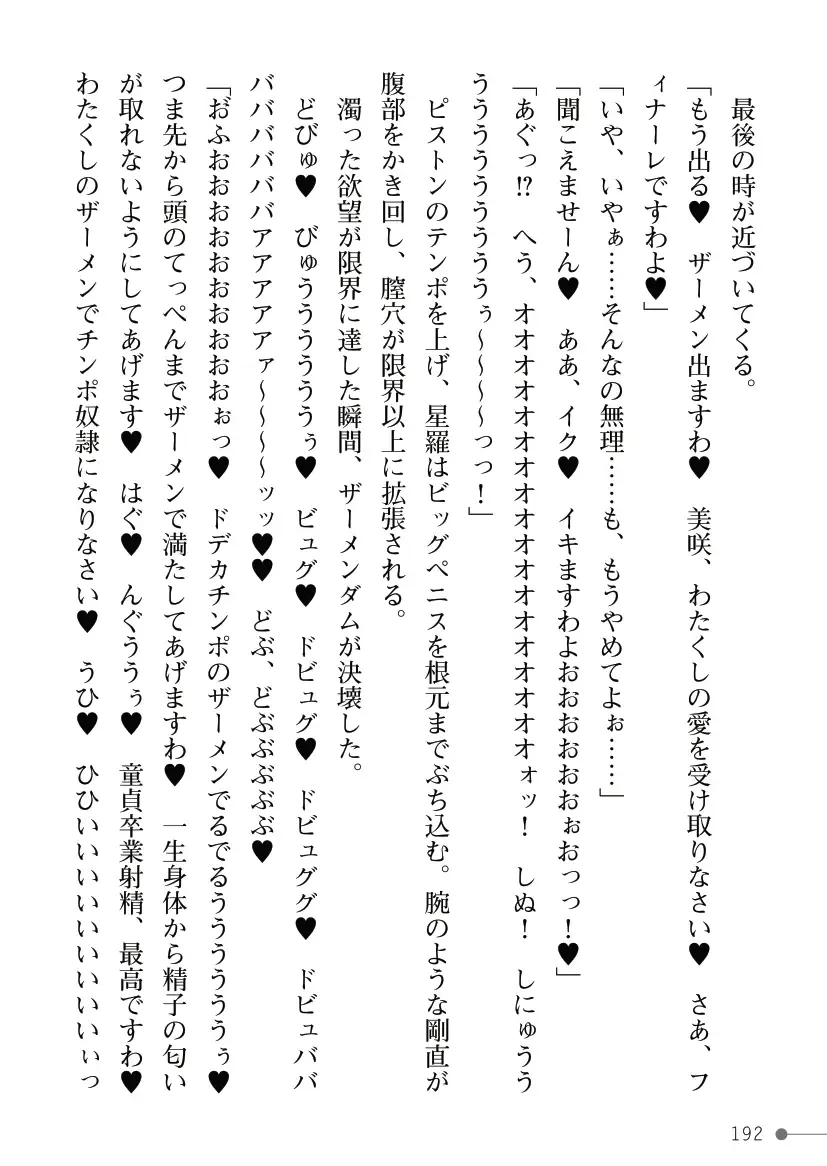 最後の時が近づいてくる。
「もう出る♥　ザーメン出ますわ♥　美咲、わたくしの愛を受け取りなさい♥　さあ、フ
ィナーレですわよ♥」
「いや、いやぁ……そんなの無理……も、もうやめてよぉ……」
「聞こえませーん♥　ああ、イク♥　イキますわよおおおおおおぉおっっ！♥」
「あぐっ!?　へう、オオオオオオオオオオオオオオオオオオォッ！　しぬ！　しにゅうう
ううううううううぅ～～～～っっ！」
ピストンのテンポを上げ、星羅はビッグペニスを根元までぶち込む。腕のような剛直が
腹部をかき回し、膣穴が限界以上に拡張される。
濁った欲望が限界に達した瞬間、ザーメンダムが決壊した。
どびゅ♥　びゅううううううぅ♥　ビュグ♥　ドビュグ♥　ドビュググ♥　ドビュババ
バババババババアアアアアァ～～～～ッッ♥♥　どぶ、どぶぶぶぶぶ♥
「おふおおおおおおおおおおぉっ♥　ドデカチンポのザーメンでるでるうううううぅ♥
つま先から頭のてっぺんまでザーメンで満たしてあげますわ♥　一生身体から精子の匂い
が取れないようにしてあげます♥　はぐ♥　んぐううぅ♥　童貞卒業射精、最高ですわ♥
わたくしのザーメンでチンポ奴隷になりなさい♥　うひ♥　ひひいいいいいいいいいぃっ
192